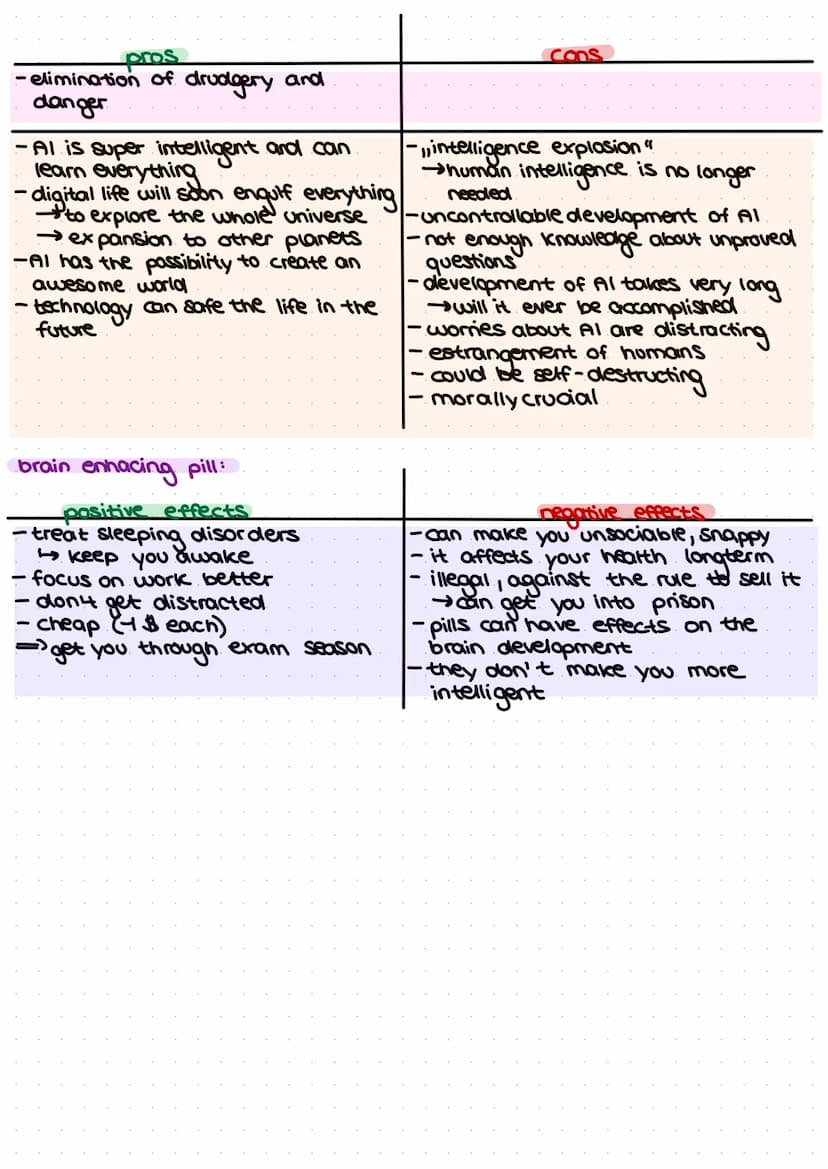 pros
cons
- elimination of drudgery and
danger
- AI is super intelligent and can
learn everything
- digital life will soon engulf everything
→ to explore the whole universe
→ expansion to other planets
- AI has the possibility to create an
awesome world
- technology can safe the life in the
future
- „intelligence explosion“
→ human intelligence is no longer
needed
- uncontrollable development of AI
- not enough knowledge about unproved
questions
- development of AI takes very long
→ will it ever be accomplished
- worries about AI are distracting
- estrangement of humans
- could be self-destructing
- morally crucial
brain enhacing pill:
positive effects
negative effects
- treat sleeping disorders
↳ keep you awake
- focus on work better
- don't get distracted
- cheap (~1 $ each)
=> get you through exam season
- can make you unsociable, snappy
- it affects your health longterm
- illegal, against the rule to sell it
→ can get you into prison
- pills can have effects on the
brain development
- they don't make you more
intelligent